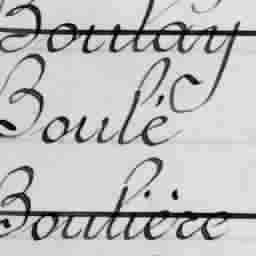 Boulay
Boulé
Boulière